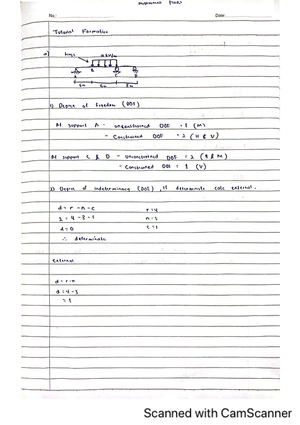 No.: Date:
Tutorial Formative
hinge
A B C D
1) Degree of freedom (DOF)
At support A - unconstrained DOF = 1 (M)
- Constrained DOF = 2 (H & V)
At support C & D - unconstrained DOF = 2 (H & M)
- Constrained DOF = 1 (V)
2) Degree of indeterminacy (DOI), if determinate calc external.
d = r - n - c r = 4
2 = 4 - 3 - 1 n = 3
d = 0 c = 1
∴ determinate
External
d = r - n
d = 4 - 3
= 1
Scanned with CamScanner